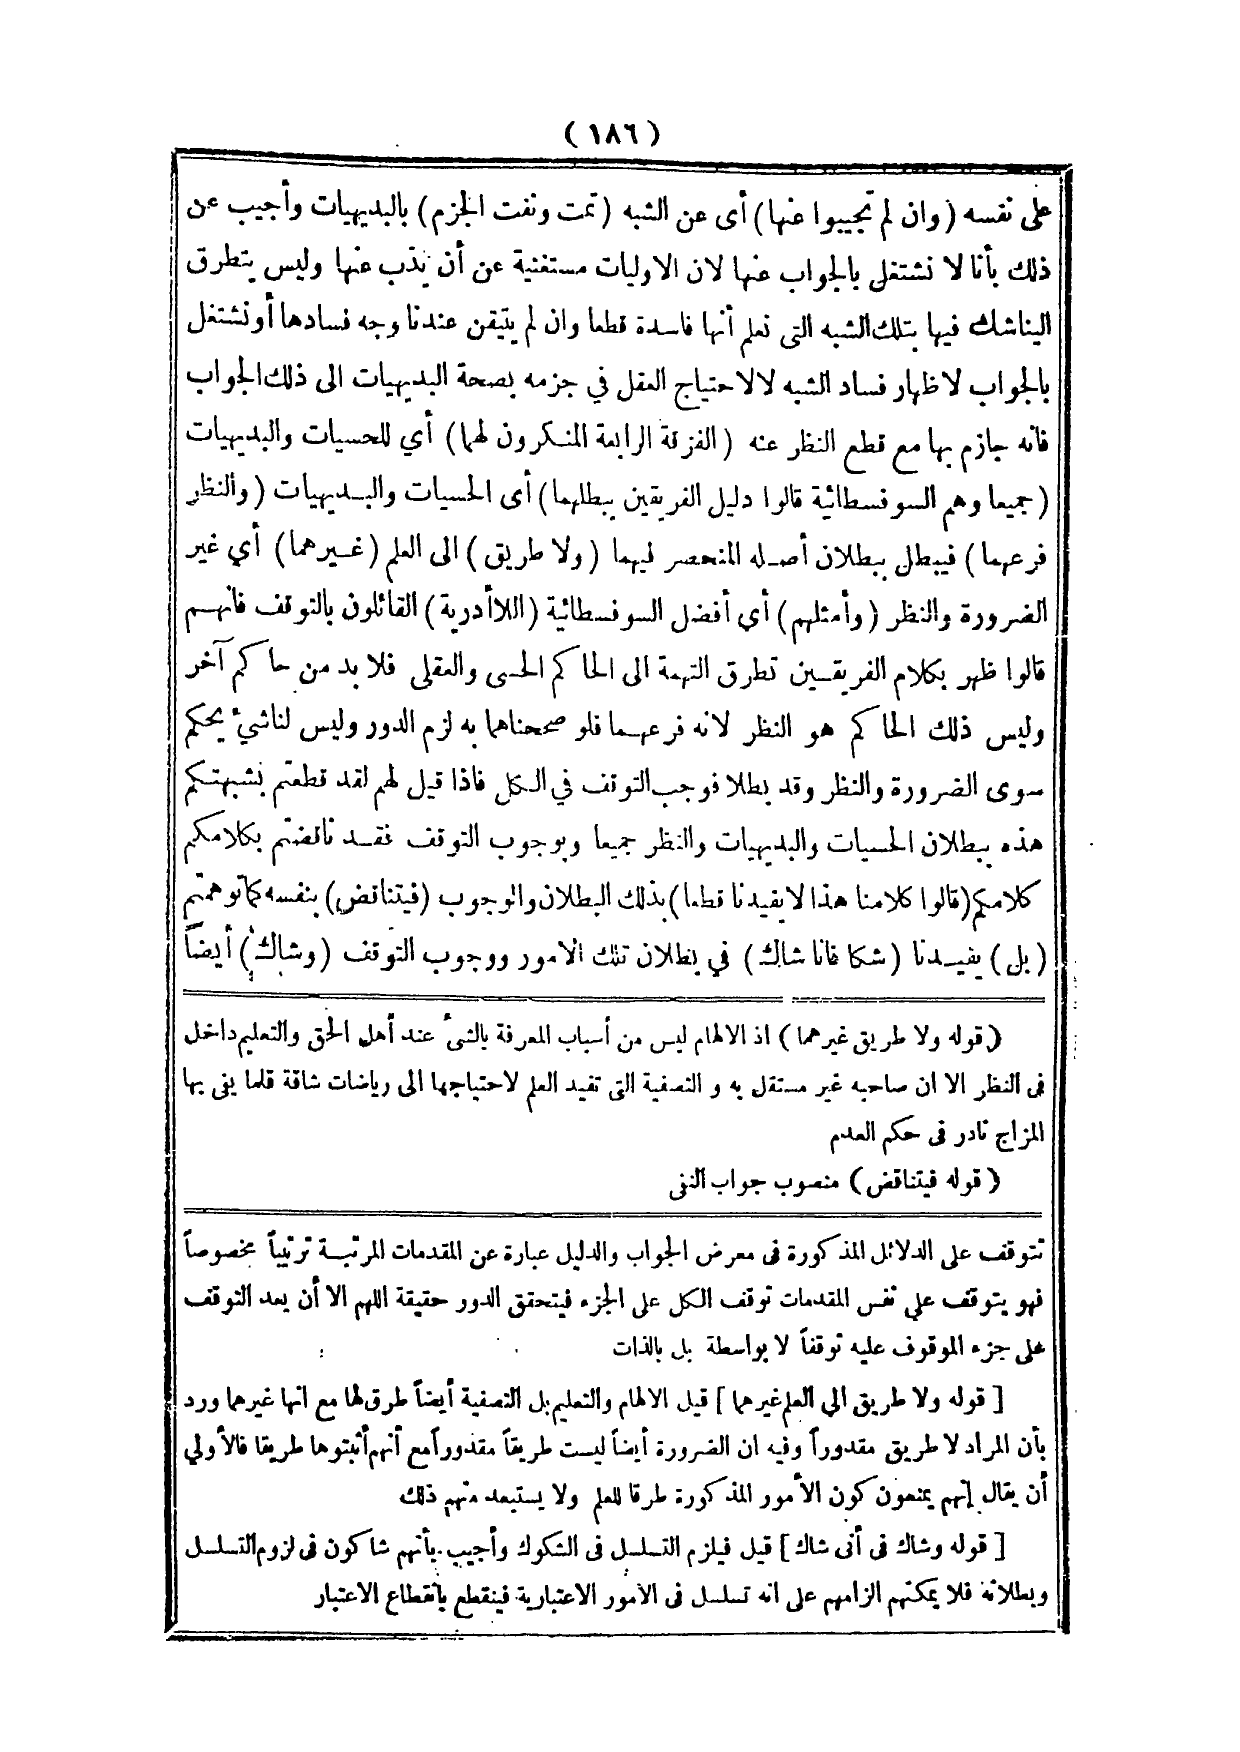 ( ١٨٦ )
على نفسه ( وان لم تجيبوا عنها ) أى عن الشبه ( تمت ونفت الجزم ) بالبديهيات وأجيب عن
ذلك بأنا لا نشتغل بالجواب عنها لان الاوليات مستغنية عن أن يذب عنها وليس يتطرق
الينا شك فيها بتلك الشبه التى نعلم أنها فاسدة قطعا وان لم يتيقن عندنا وجه فسادها أو نشتغل
بالجواب لاظهار فساد الشبه لا لاحتياج العقل في جزمه بصحة البديهيات الى ذلك الجواب
فانه جازم بها مع قطع النظر عنه ( الفرقة الرابعة المنكرون لهما ) أي للحسيات والبديهيات
( جميعا وهم السوفسطائية قالوا دليل الفريقين يبطلهما ) أى الحسيات والبديهيات ( والنظر
فرعهما ) فيبطل ببطلان أصله المنحصر فيهما ( ولا طريق ) الى العلم ( غيرهما ) أي غير
الضرورة والنظر ( وأمثلهم ) أي أفضل السوفسطائية ( اللاأدرية ) القائلون بالتوقف فانهم
قالوا ظهر بكلام الفريقين تطرق التهمة الى الحاكم الحسى والعقلى فلا بد من حاكم آخر
وليس ذلك الحاكم هو النظر لانه فرعهما فلو صححناهما به لزم الدور وليس لنا شيء يحكم
سوى الضرورة والنظر وقد بطلا فوجب التوقف في الكل فاذا قيل لهم لقد قطعتم بشبهتكم
هذه ببطلان الحسيات والبديهيات والنظر جميعا وبوجوب التوقف فقد ناقضتم بكلامكم
كلامكم ( قالوا كلامنا هذا لا يفيدنا قطعا ) بذلك البطلان والوجوب ( فيتناقض ) بنفسه كما توهمتم
( بل ) يفيدنا ( شكا فانا شاك ) في بطلان تلك الامور ووجوب التوقف ( وشاك ) أيضاً
( قوله ولا طريق غيرهما ) اذ الالهام ليس من أسباب المعرفة بالشئ عند أهل الحق والتعليم داخل
فى النظر الا ان صاحبه غير مستقل به و التصفية التى تفيد العلم لاحتياجها الى رياضات شاقة قلما يفى بها
المزاج نادر فى حكم العدم
( قوله فيتناقض ) منصوب جواب النفى
تتوقف على الدلائل المذكورة فى معرض الجواب والدليل عبارة عن المقدمات المرتبة ترتيباً مخصوصاً
فهو يتوقف على نفس المقدمات توقف الكل على الجزء فيتحقق الدور حقيقة اللهم الا أن يعد التوقف
على جزء الموقوف عليه توقفاً لا بواسطة بل بالذات
[ قوله ولا طريق الى العلم غيرهما ] قيل الالهام والتعليم بل التصفية أيضاً طرق لها مع انها غيرهما ورد
بأن المراد لا طريق مقدوراً وفيه ان الضرورة أيضاً ليست طريقاً مقدوراً مع أنهم أثبتوها طريقا فالأولي
أن يقال إنهم يمنعون كون الأمور المذكورة طرقا للعلم ولا يستبعد منهم ذلك
[ قوله وشاك فى أنى شاك ] قيل فيلزم التسلسل فى الشكوك وأجيب بأنهم شاكون فى لزوم التسلسل
وبطلانه فلا يمكنهم الزامهم على انه تسلسل فى الامور الاعتبارية فينقطع بانقطاع الاعتبار